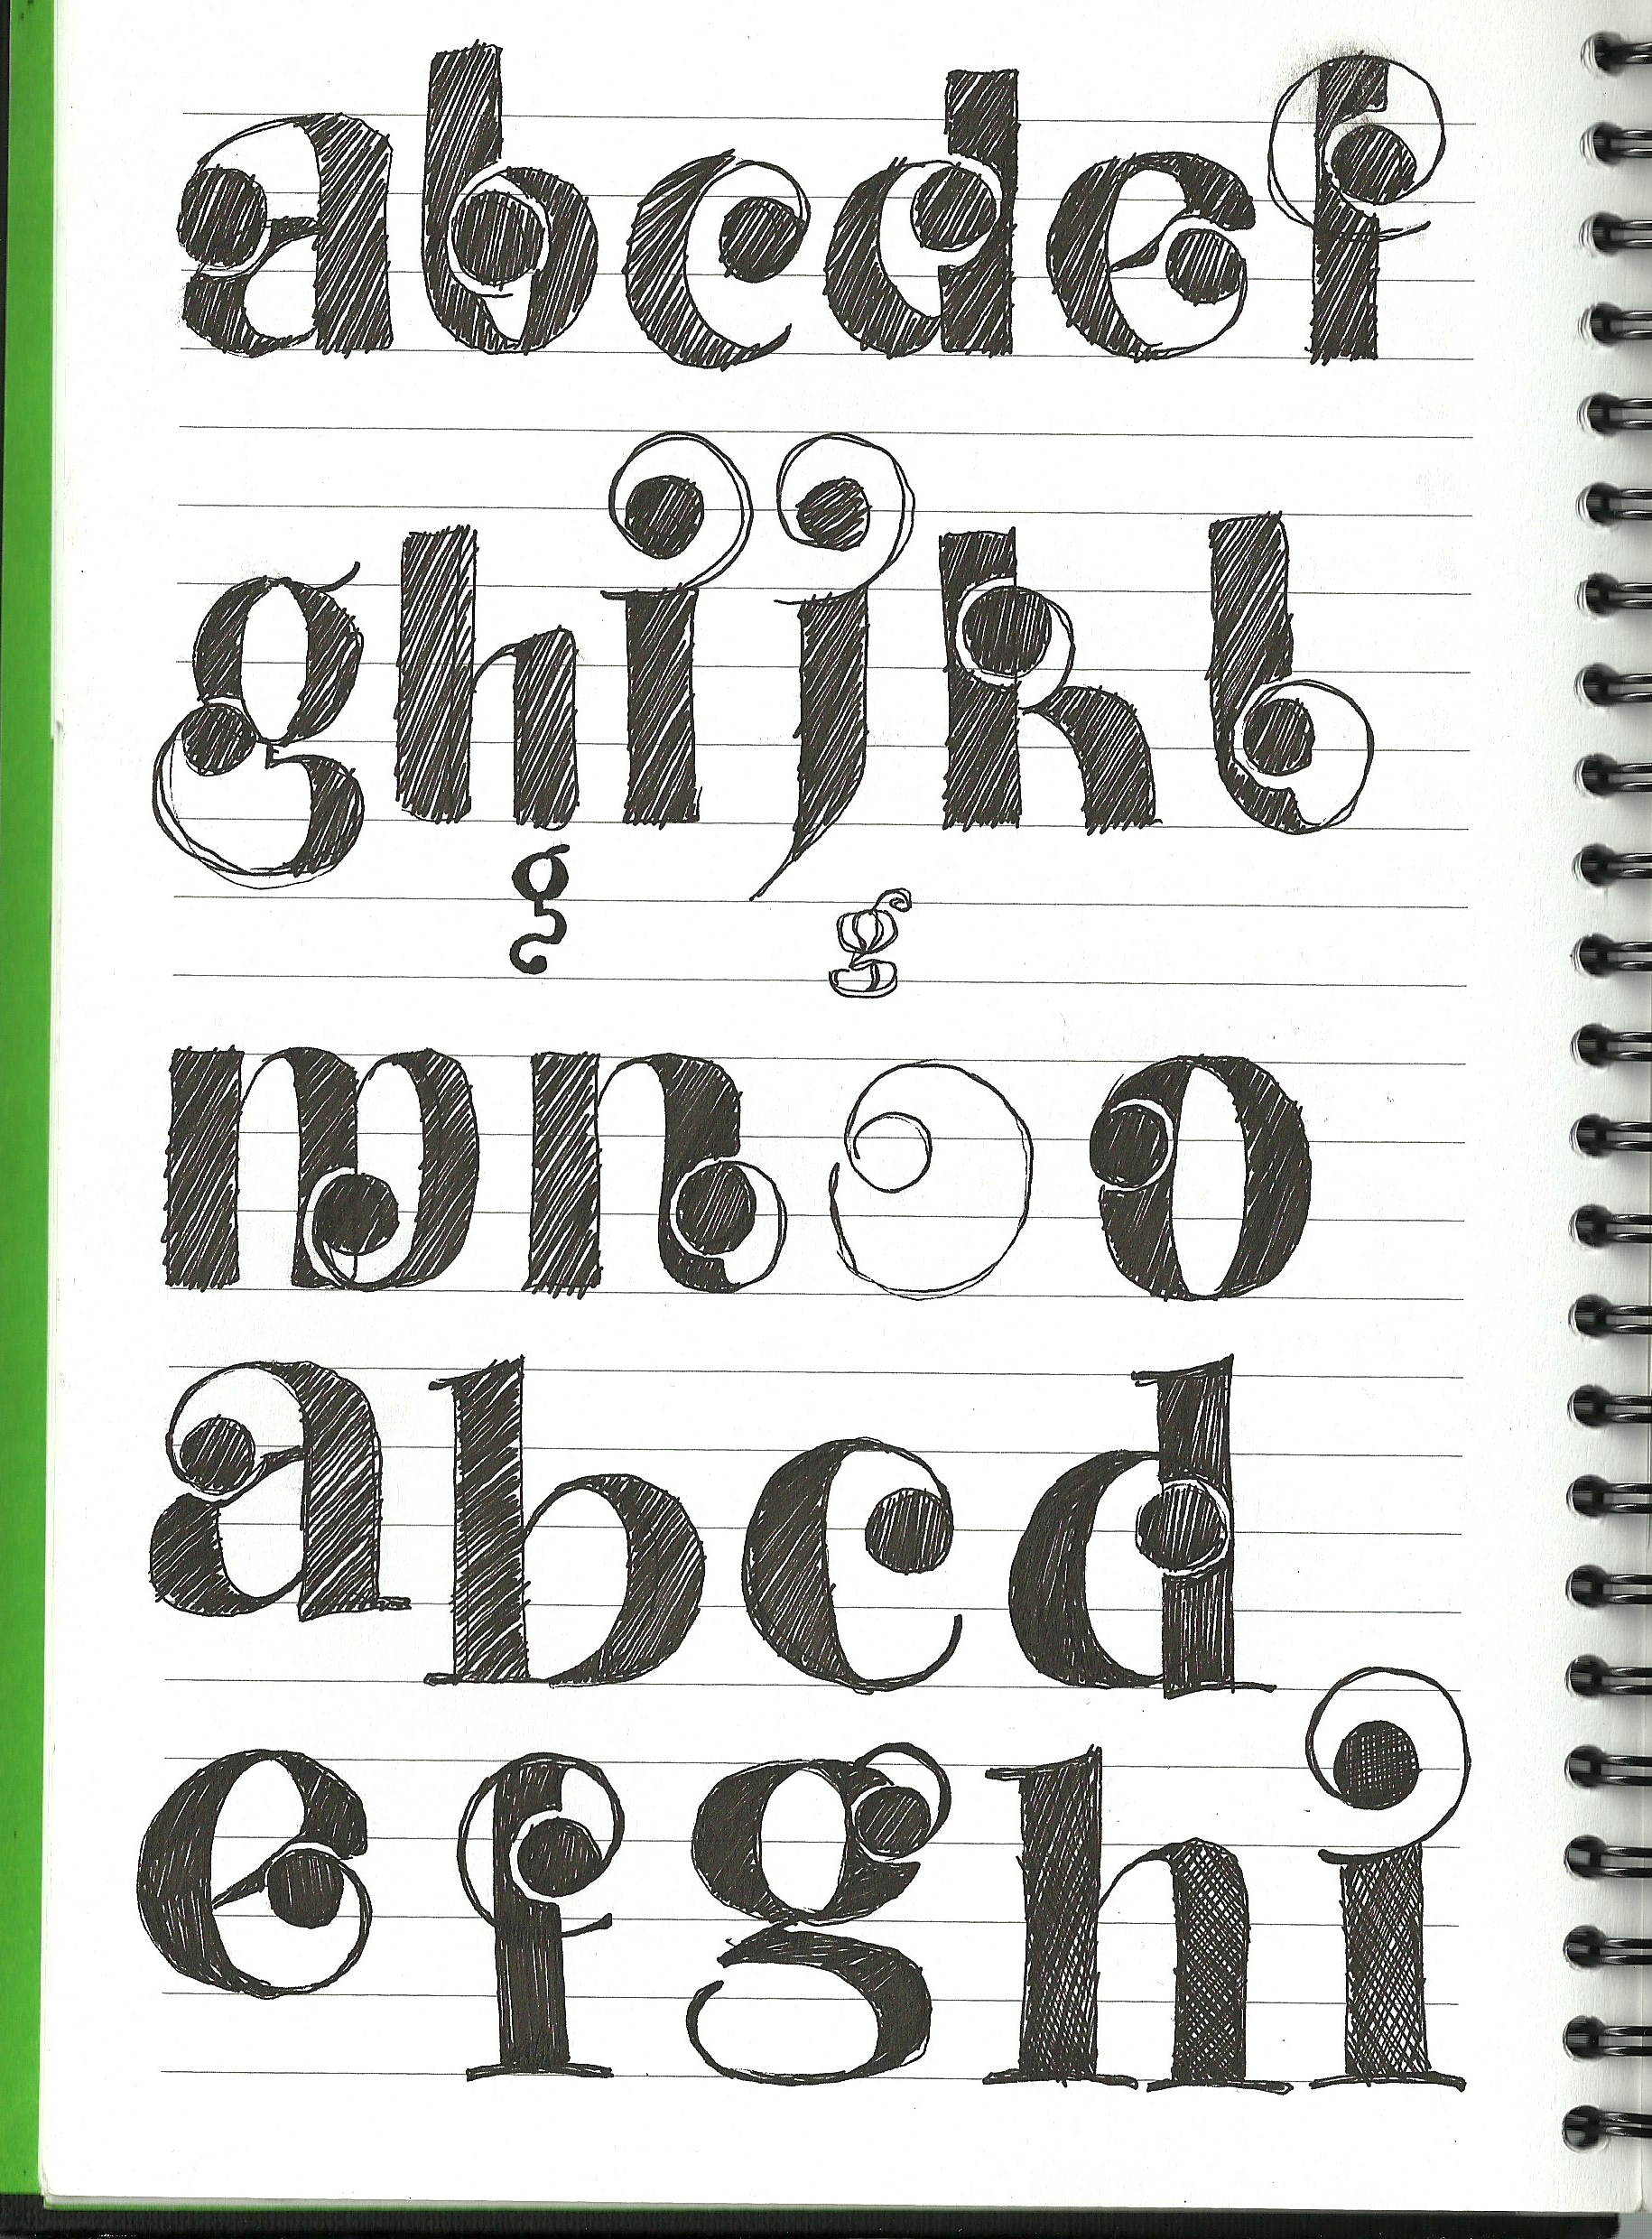 abcdef
ghijkl
g g
mnoo
abcd
efghi